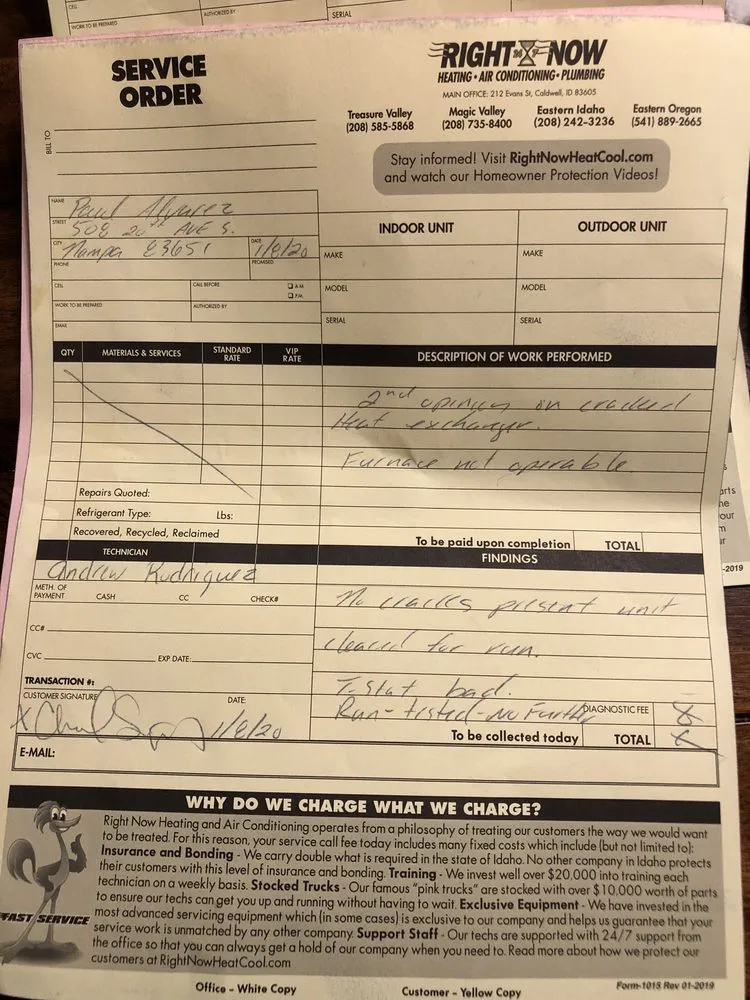 CELL
AUTHORIZED BY
WORK TO BE PREPARED
SERIAL
SERVICE
ORDER
RIGHT 24/7 NOW
HEATING • AIR CONDITIONING • PLUMBING
MAIN OFFICE: 212 Evans St, Caldwell, ID 83605
Treasure Valley Magic Valley Eastern Idaho Eastern Oregon
(208) 585-5868 (208) 735-8400 (208) 242-3236 (541) 889-2665
BILL TO
Stay informed! Visit RightNowHeatCool.com
and watch our Homeowner Protection Videos!
NAME Paul Alvarez
STREET 508 20th AVE S.
CITY Nampa 83651 DATE 1/8/20
PHONE PROMISED
CELL CALL BEFORE A.M.
P.M.
WORK TO BE PREPARED AUTHORIZED BY
EMAIL
INDOOR UNIT OUTDOOR UNIT
MAKE MAKE
MODEL MODEL
SERIAL SERIAL
QTY MATERIALS & SERVICES STANDARD RATE VIP RATE
DESCRIPTION OF WORK PERFORMED
2nd opinion on cracked
Heat exchanger.
Furnace not operable.
Repairs Quoted:
Refrigerant Type: Lbs:
Recovered, Recycled, Reclaimed
To be paid upon completion TOTAL
TECHNICIAN
Andrew Rodriguez
METH. OF PAYMENT CASH CC CHECK#
CC#
CVC EXP DATE:
TRANSACTION #:
CUSTOMER SIGNATURE DATE:
X 1/8/20
FINDINGS
No cracks present unit
cleared for run.
T-stat bad.
Run-tested-No Further
DIAGNOSTIC FEE
To be collected today TOTAL
E-MAIL:
WHY DO WE CHARGE WHAT WE CHARGE?
Right Now Heating and Air Conditioning operates from a philosophy of treating our customers the way we would want
to be treated. For this reason, your service call fee today includes many fixed costs which include (but not limited to):
Insurance and Bonding - We carry double what is required in the state of Idaho. No other company in Idaho protects
their customers with this level of insurance and bonding. Training - We invest well over $20,000 into training each
technician on a weekly basis. Stocked Trucks - Our famous "pink trucks" are stocked with over $10,000 worth of parts
to ensure our techs can get you up and running without having to wait. Exclusive Equipment - We have invested in the
most advanced servicing equipment which (in some cases) is exclusive to our company and helps us guarantee that your
service work is unmatched by any other company. Support Staff - Our techs are supported with 24/7 support from
the office so that you can always get a hold of our company when you need to. Read more about how we protect our
customers at RightNowHeatCool.com
FAST SERVICE
Office - White Copy Customer - Yellow Copy Form-1015 Rev 01-2019
-2019